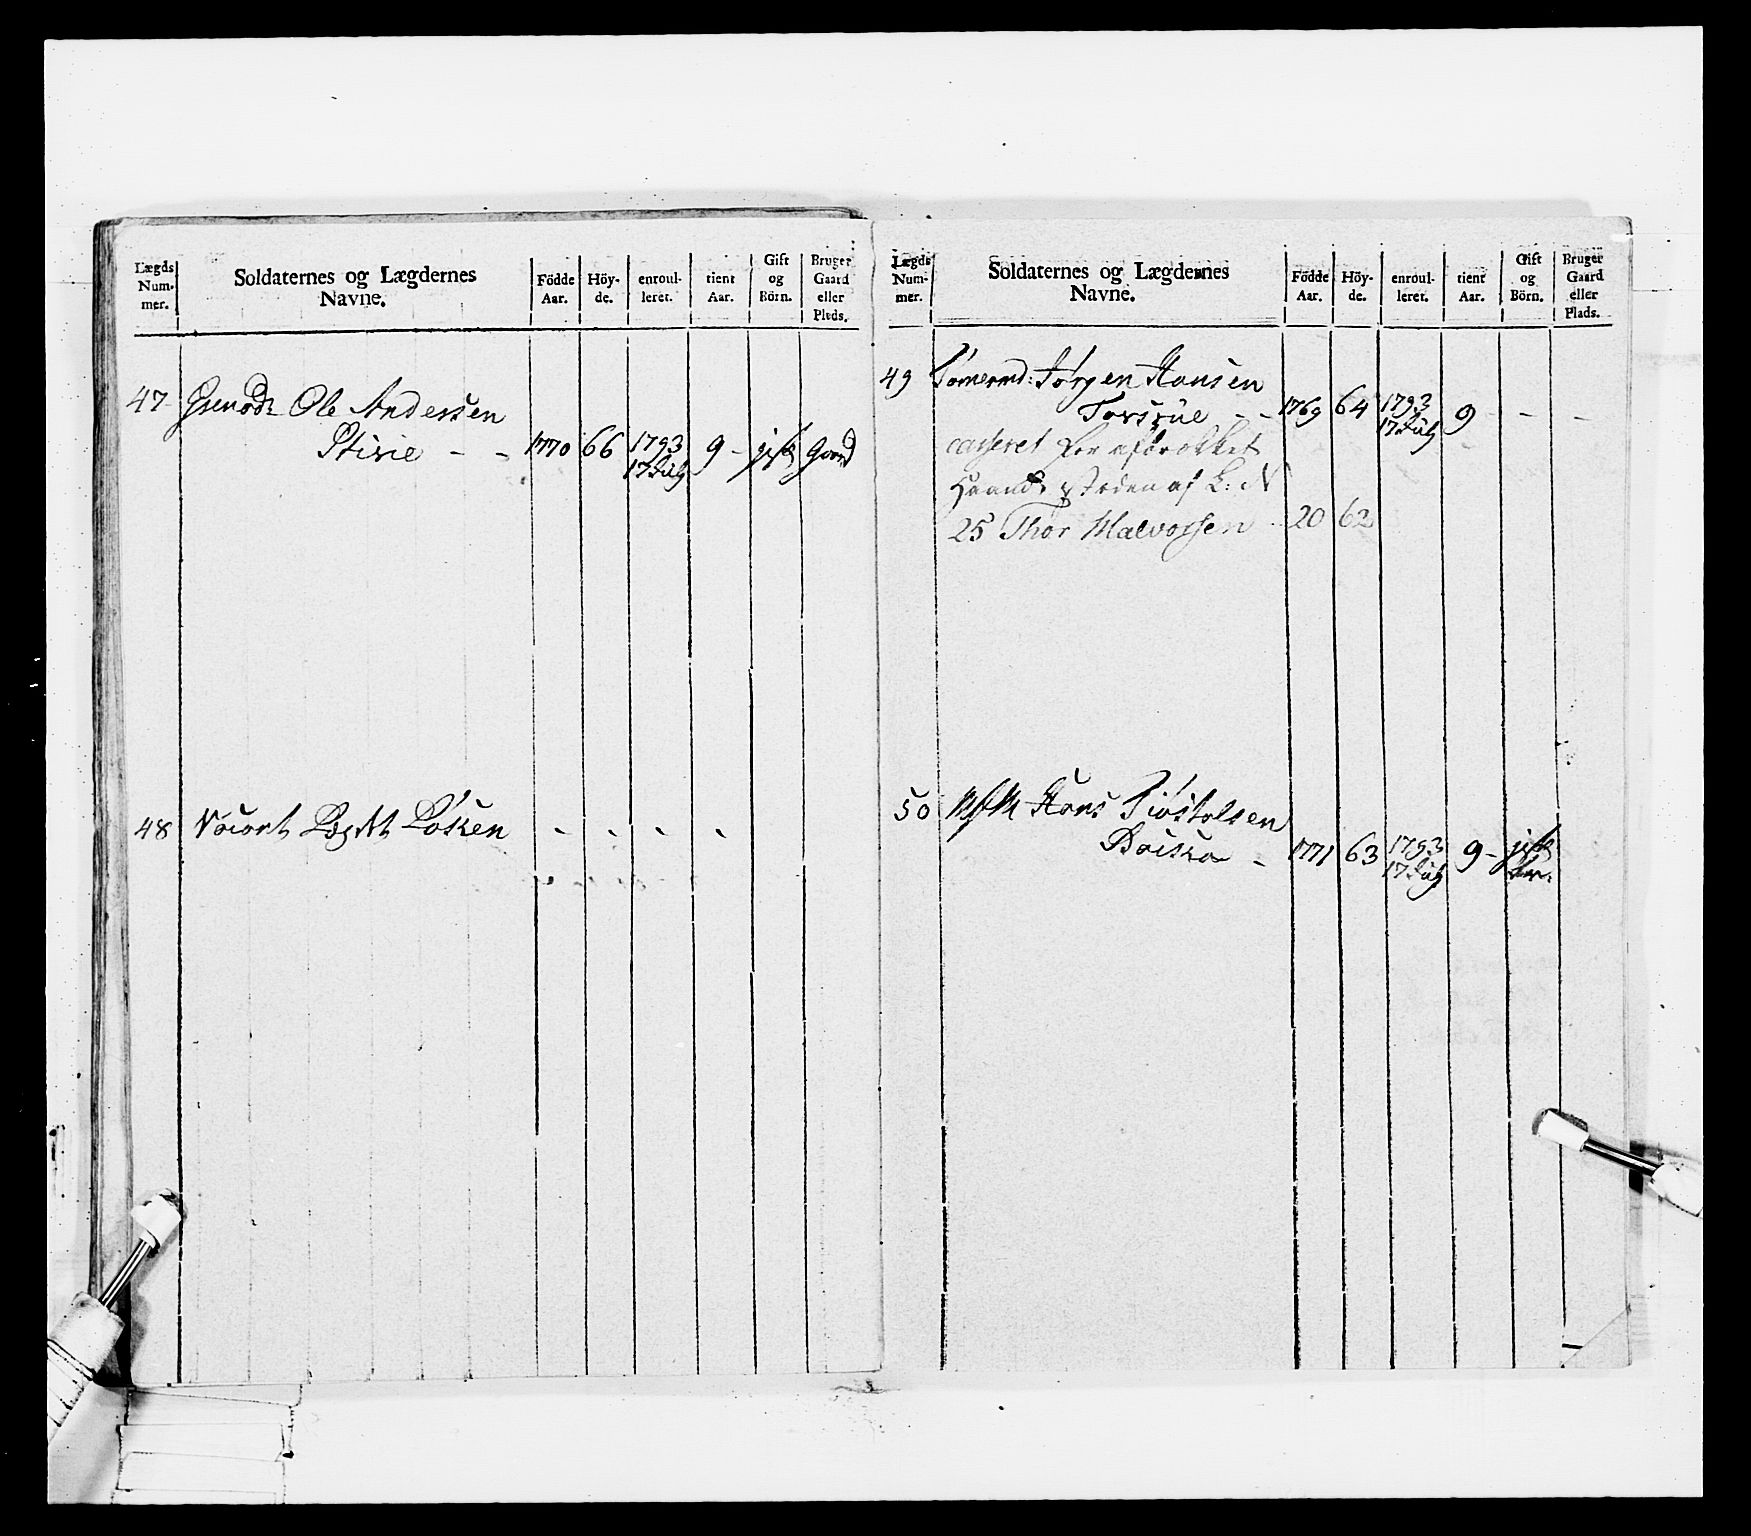 Lægds Num- mer.
Soldaternes og Lægdernes Navne.
Födde Aar.
Höy- de.
enroul- leret.
tient Aar.
Gift og Börn.
Bruger Gaard eller Plads.
47 Grenad: Ole Anderssen
1770 66 1793 9 - gift Gaard
17 July
48 Vacant Lægdt Løken - - - -
Lægds Num- mer.
Soldaternes og Lægdernes Navne.
Födde Aar.
Höy- de.
enroul- leret.
tient Aar.
Gift og Börn.
Bruger Gaard eller Plads.
49 Tømermd: Jørgen Hansen
Torsrue - - 1769 64 1793 9 - -
17 July
casseret for
Haand, af L: N
25 Thor Halvorsen 20 62
50 Hans Tiøstolsen
- 1771 63 1793 9 - gift
17 July